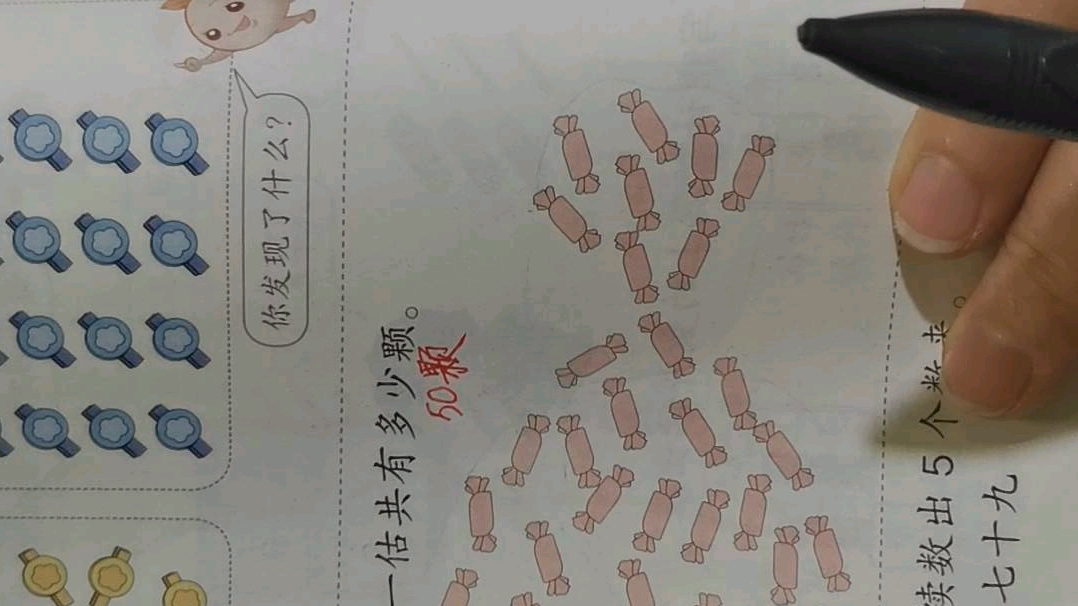 你发现了什么？
一估共有多少颗。
50颗
续数出5个数来。
七十九